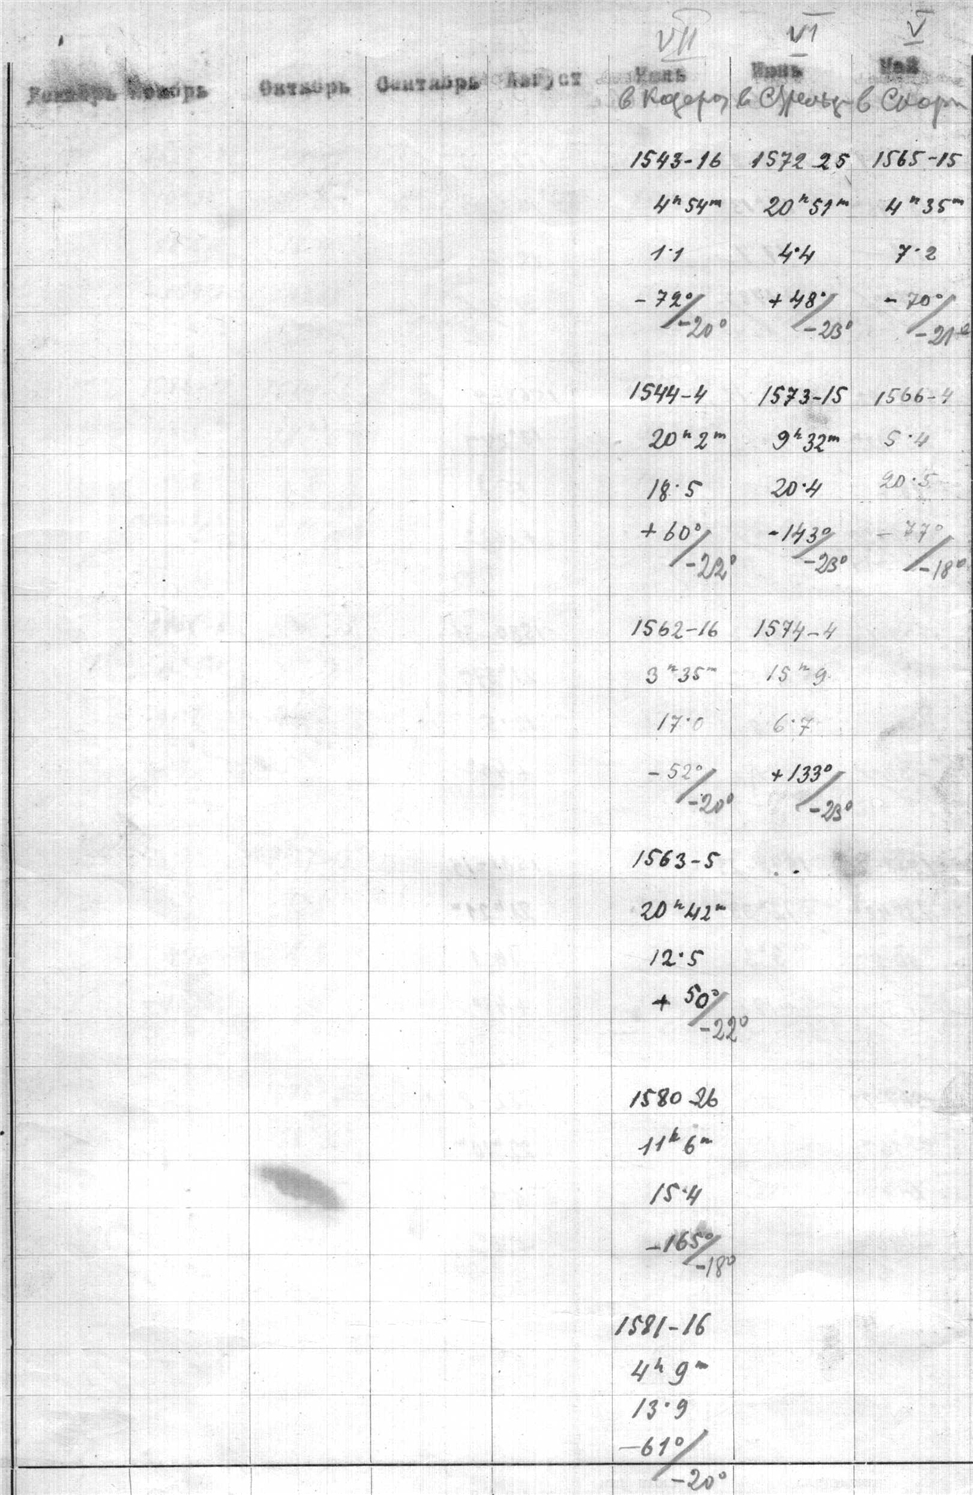 VII VI V
Декабрь Ноябрь Октябрь Сентябрь Август Июль Июнь Май
в Козерог в Стрельц в Скорп
1543-16 1572 25 1565-15
4ʰ54ᵐ 20ʰ51ᵐ 4ʰ35ᵐ
1·1 4·4 7·2
-72°/-20° +48°/-23° -70°/-21°
1544-4 1573-15 1566-4
20ʰ2ᵐ 9ʰ32ᵐ 5·4
18·5 20·4 20·5
+60°/-22° -143°/-23° -77°/-18°
1562-16 1574-4
3ʰ35ᵐ 15ʰ9
17·0 6·7
-52°/-20° +133°/-23°
1563-5
20ʰ42ᵐ
12·5
+50°/-22°
1580-26
11ʰ6ᵐ
15·4
-165°/-18°
1581-16
4ʰ9ᵐ
13·9
-61°/-20°